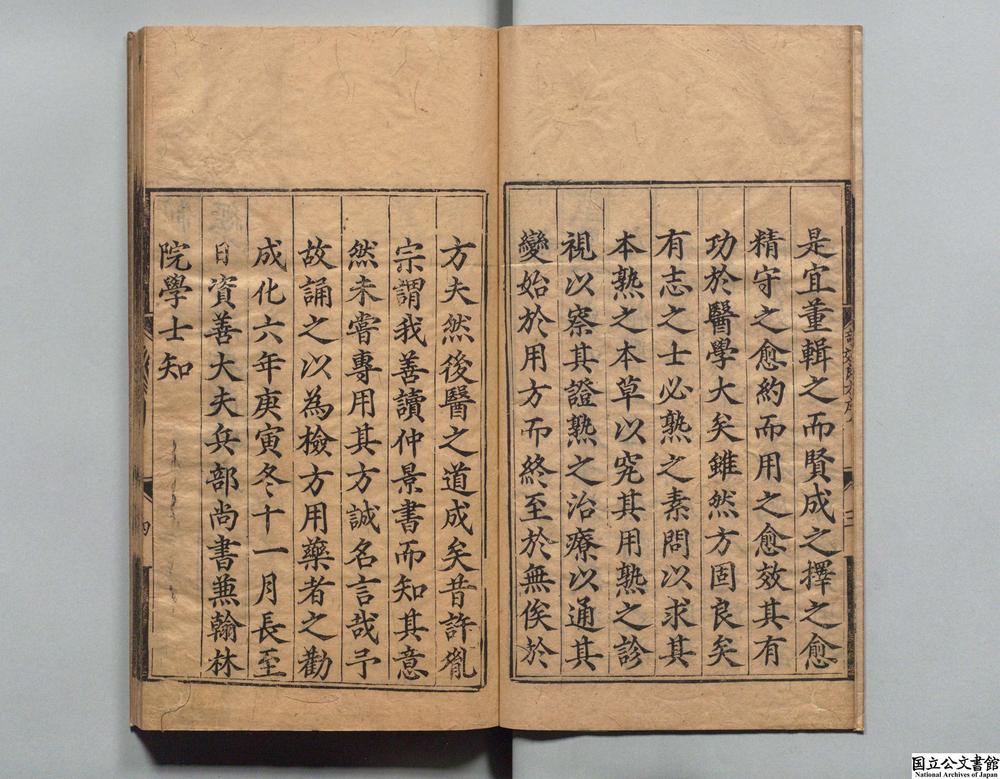 是宜董輯之而賢成之擇之愈
精守之愈約而用之愈效其有
功於醫學大矣雖然方固良矣
有志之士必熟之素問以求其
本熟之本草以究其用熟之診
視以察其證熟之治療以通其
變始於用方而終至於無俟於
方夫然後醫之道成矣昔許胤
宗謂我善讀仲景書而知其意
然未嘗專用其方誠名言哉予
故誦之以為檢方用藥者之勸
成化六年庚寅冬十一月長至
日資善大夫兵部尚書兼翰林
院學士知
四
国立公文書館
National Archives of Japan